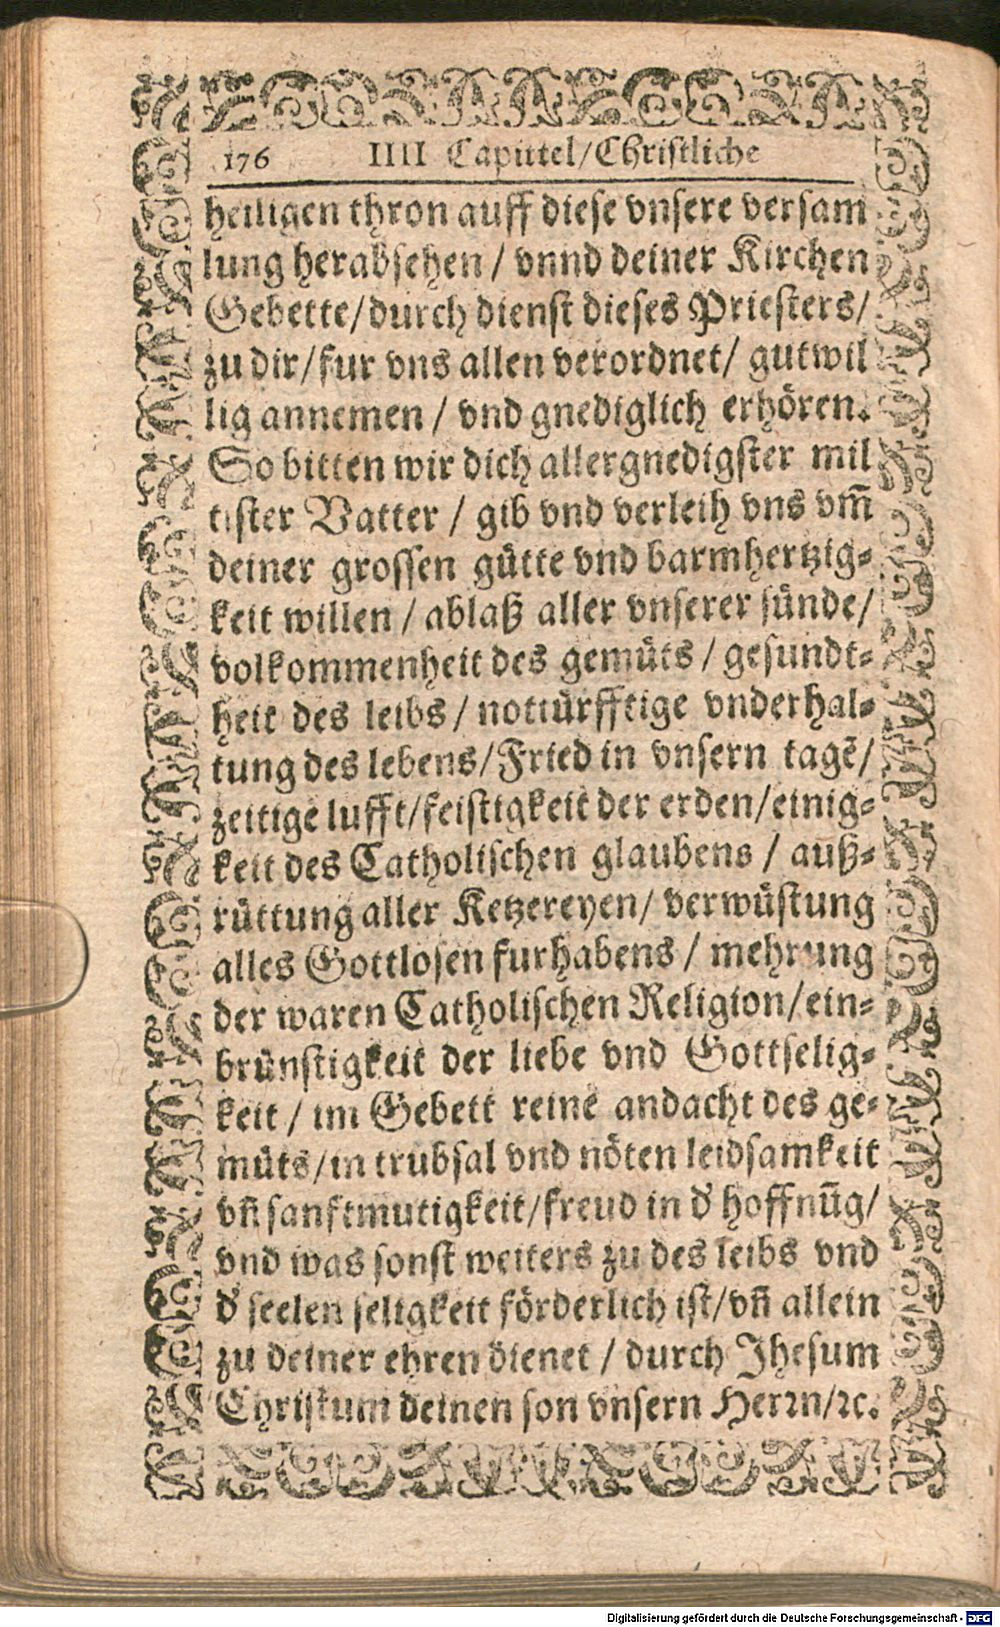 176 IIII Capittel/Christliche
heiligen thron auff diese vnsere versam
lung herabsehen / vnnd deiner Kirchen
Gebette/durch dienst dieses Priesters/
zu dir/fur vns allen verordnet/ gutwil
lig annemen / vnd gnediglich erhören.
So bitten wir dich allergnedigster mil
tister Vatter / gib vnd verleih vns vm̃
deiner grossen gütte vnd barmhertzig-
keit willen / ablaß aller vnserer sünde/
volkommenheit des gemüts / gesundt-
heit des leibs / nottürfftige vnderhal-
tung des lebens/Fried in vnsern tagē/
zeitige lufft/feistigkeit der erden/einig-
keit des Catholischen glaubens / auß-
rüttung aller Ketzereyen/ verwüstung
alles Gottlosen furhabens / mehrung
der waren Catholischen Religion/ein-
brünstigkeit der liebe vnd Gottselig-
keit / im Gebett reine andacht des ge-
müts/in trubsal vnd nöten leidsamkeit
vñ sanftmutigkeit/freud in d' hoffnũg/
vnd was sonst weiters zu des leibs vnd
d' seelen seligkeit förderlich ist/vñ allein
zu deiner ehren dienet / durch Jhesum
Christum deinen son vnsern Herrn/ꝛc.
Digitalisierung gefördert durch die Deutsche Forschungsgemeinschaft - DFG